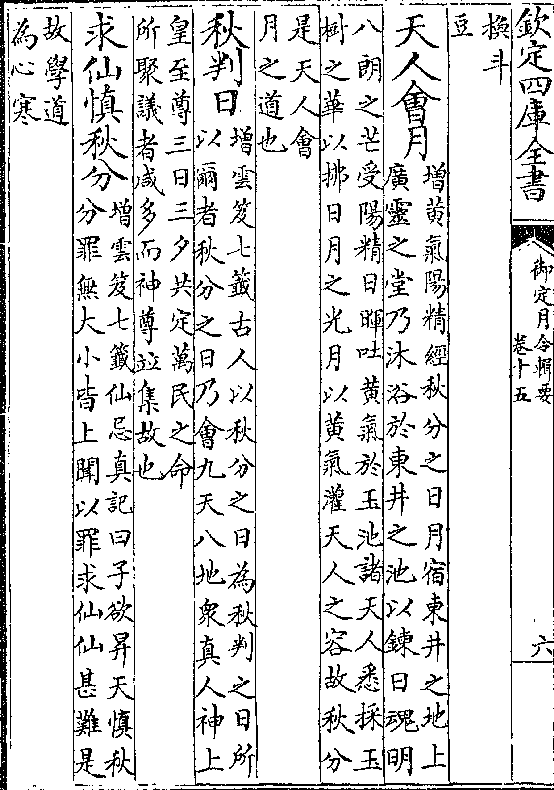 欽定四庫全書
御定月令輯要
卷十五
六
換斗
豆
天人會月
增黃氣陽精經秋分之日月宿東井之地上
廣靈之堂乃沐浴於東井之池以鍊日魂明
八朗之芒受陽精日暉吐黃氣於玉池諸天人悉採玉
樹之華以拂日月之光月以黃氣灌天人之容故秋分
是天人會
月之道也
秋判日
增雲笈七籤古人以秋分之日為秋判之日所
以爾者秋分之日乃會九天八地衆真人神上
皇至尊三日三夕共定萬民之命
所聚議者咸多而神尊竝集故也
求仙慎秋分
增雲笈七籤仙忌真記曰子欲昇天慎秋
分罪無大小皆上聞以罪求仙仙甚難是
故學道
為心寒